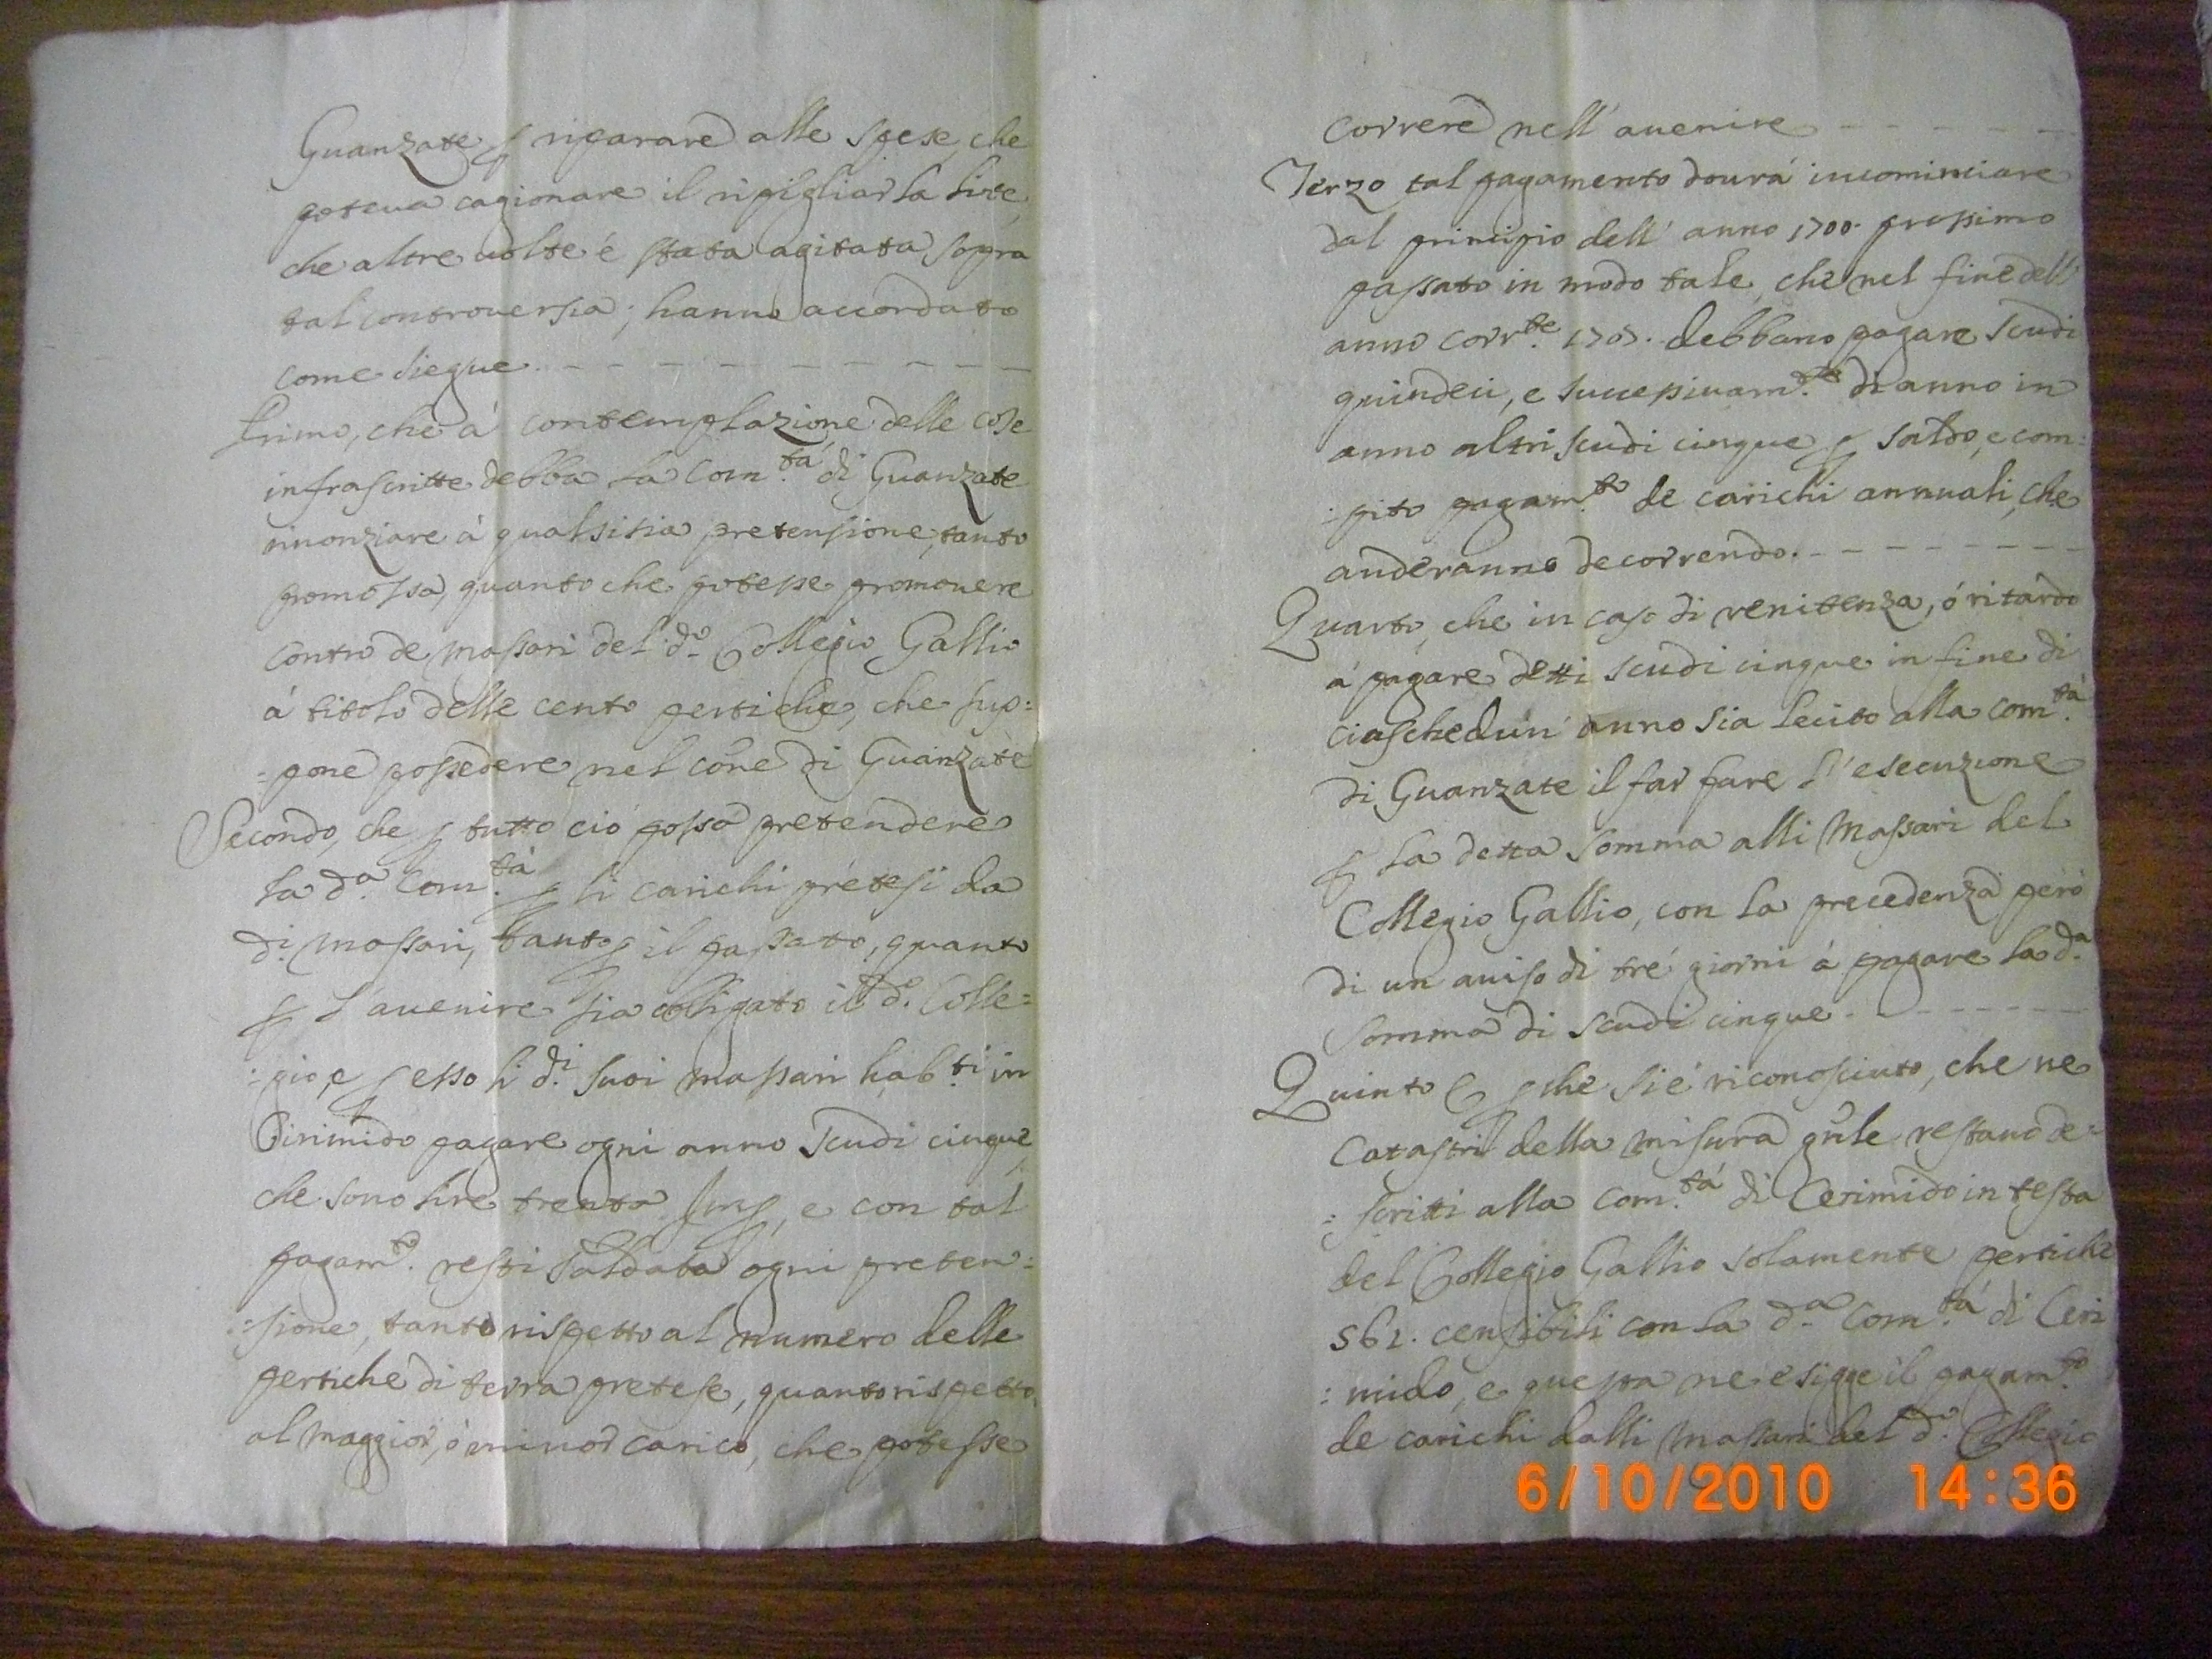 Guanzate p riparare alle spese, che
poteua cagionare il ripigliar la lite,
che altre uolte é stata agitata sopra
tal controuersia; hanno accordato
come siegue
Primo, che á contemplazione delle cose
infrascritte debba la Com.tá di Guanzate
rinonziare á qualsisia pretensione, tanto
promossa, quanto che potesse promouere
contro de massari del d.º Collegio Gallio
á titolo delle cento pertiche, che sup:
:pone possedere nel cõne di Guanzate
Secondo, che p tutto ció possa pretendere
la d.a Com.tá p li carichi prétesi da
d.i massari, tanto p il passato, quanto
p l'auenire sia obligato il d.º Colle:
:gio, e p esso li d.i suoi massari hab.ti in
Cirimido pagare ogni anno scudi cinque,
che sono lire trenta Imp, e con tal
pagam.to resti saldata ogni preten:
:sione, tanto rispetto al numero delle
pertiche di terra pretese, quanto rispetto
al maggior, ó minor carico, che potesse
correre nell' auenire
Terzo tal pagamento dourá incominciare
dal principio dell' anno 1700. prossimo
passato in modo tale, che nel fine dell'
anno corr.te 1707. debbano pagare scudi
quindeci, e successiuam.te di anno in
anno altri scudi cinque p saldo, e com:
:pito pagam.to de carichi annuali, che
anderanno decorrendo.
Quarto, che in caso di renitenza, ó ritardo
á pagare detti scudi cinque in fine di
ciaschedun' anno sia lecito alla com.tá
di Guanzate il far fare l'esecuzione
p la detta somma alli Massari del
Collegio Gallio, con la precedenza peró
di un auiso di tré giorni á pagare la d.a
somma di scudi cinque.
Quinto E p che si é riconosciuto, che ne
Catastri della misura gñle restano de:
:scritti alla Com.tá di Cerimido in testa
del Collegio Gallio solamente pertiche
561. censibili con la d.a Com.tá di Ceri
:mido, e questa ne esigge il pagam.to
de carichi dalli Massari del d.º Collegio
6/10/2010 14:36